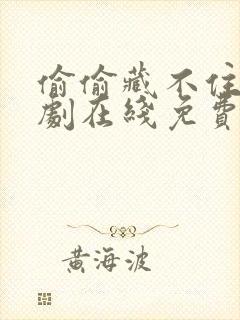 偷偷藏不住
劇在綫免費
黃海波